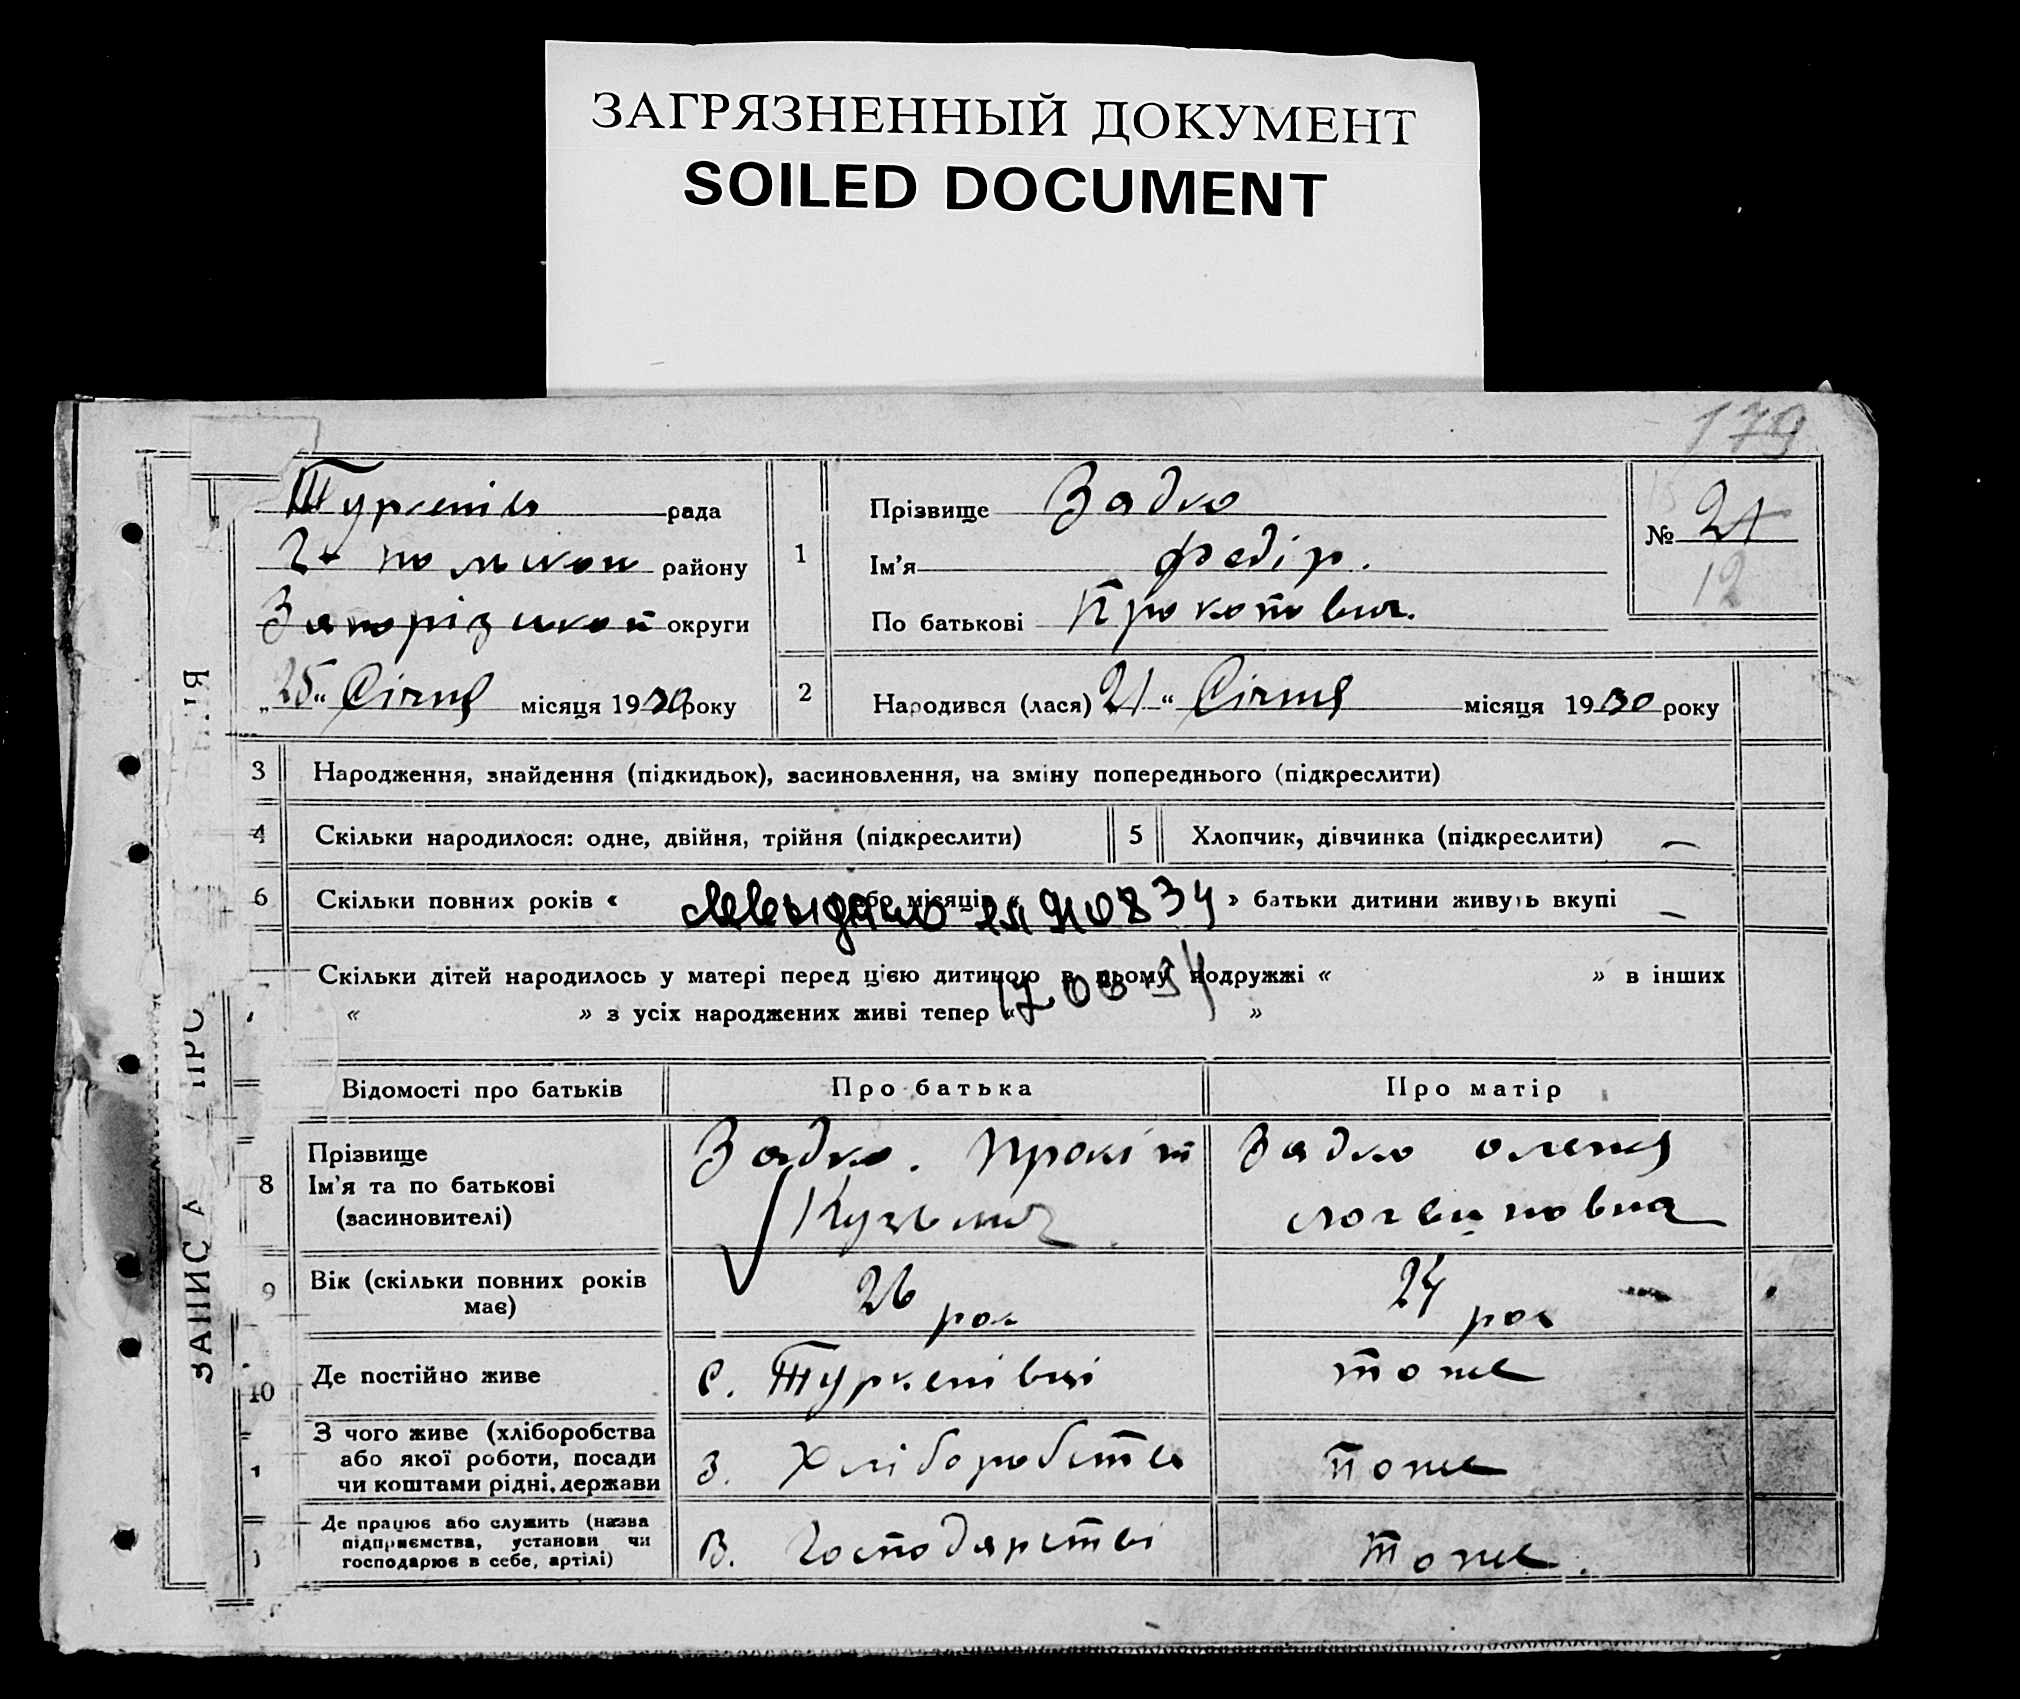 ЗАГРЯЗНЕННЫЙ ДОКУМЕНТ
SOILED DOCUMENT
179
рада
району
Запорізької округи
„25“ Січня місяця 1930 року
1
Прізвище Задко
Ім'я Федір.
По батькові Прокопович.
№ 21
12
2
Народився (лася) 21 “ Січня місяця 1930 року
3 Народження, знайдення (підкидьок), засиновлення, на зміну попереднього (підкреслити)
4 Скільки народилося: одне, двійня, трійня (підкреслити)
5 Хлопчик, дівчинка (підкреслити)
6 Скільки повних років « або місяців « » батьки дитини живуть вкупі
Скільки дітей народилось у матері перед цією дитиною в цьому подружжі « » в інших
« » з усіх народжених живі тепер « »
Відомості про батьків Про батька Про матір
8
Прізвище
Ім'я та по батькові
(засиновителі)
Задко. Прокіп
Кузьмич
Задко Олена
Логвиновна
9
Вік (скільки повних років
має)
26 рок
24 рок
10 Де постійно живе
с. Туркенівці
тоже
З чого живе (хліборобства
або якої роботи, посади
чи коштами рідні, держави
З. Хліборобства
тоже
Де працює або служить (назва
підприємства, установи чи
господарює в себе, артілі)
В. Господарстві
тоже.
ЗАПИС